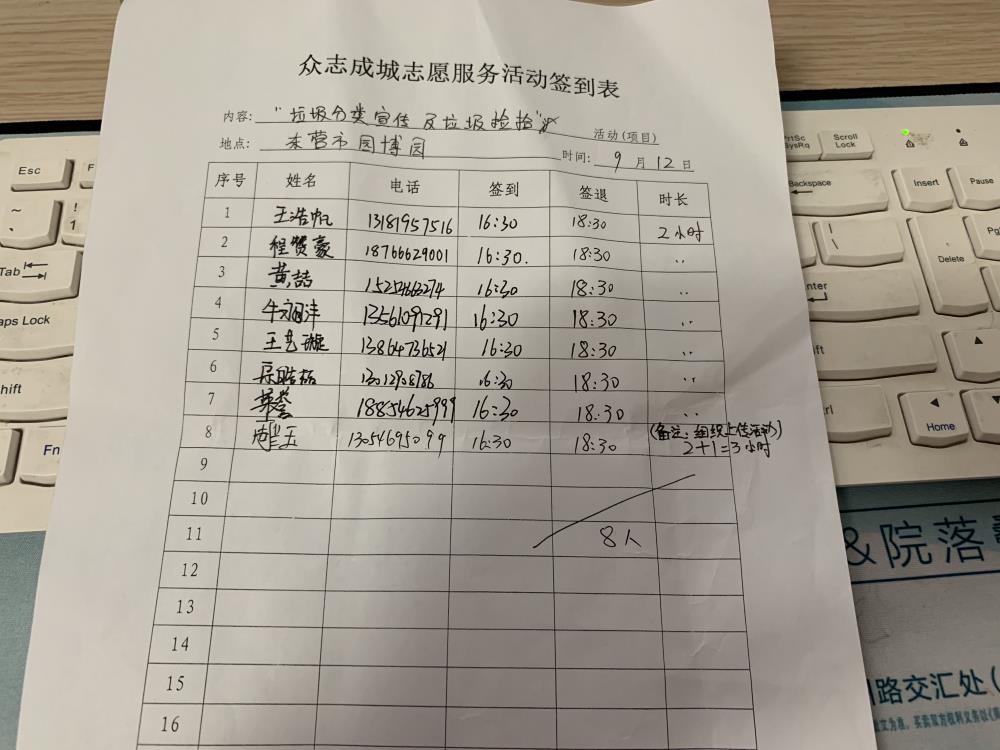 众志成城志愿服务活动签到表
内容: "垃圾分类宣传及垃圾捡拾" 活动(项目)
地点: 东营市园博园 时间: 9 月 12 日
序号 姓名 电话 签到 签退 时长
1 王浩帆 13181957516 16:30 18:30 2小时
2 程贤豪 18766629001 16:30. 18:30 ..
3 黄喆 15254663274 16:30 18:30 ..
4 牛 沣 13561097291 16:30 18:30 ..
5 王艺璇 13864736521 16:30 18:30 ..
6 16:30 18:30 ..
7 18854625999 16:30 18:30 ..
8 13054695099 16:30 18:30 (备注:组织上传活动)
2+1=3小时
9
10
11 8人
12
13
14
15
16
Esc
~
!
1
Tab
Caps Lock
Shift
Fn
PrtSc
SysRq
Scroll
Lock
Backspace
Insert
Pause
|
\
Delete
Enter
Home
&院落
路交汇处(